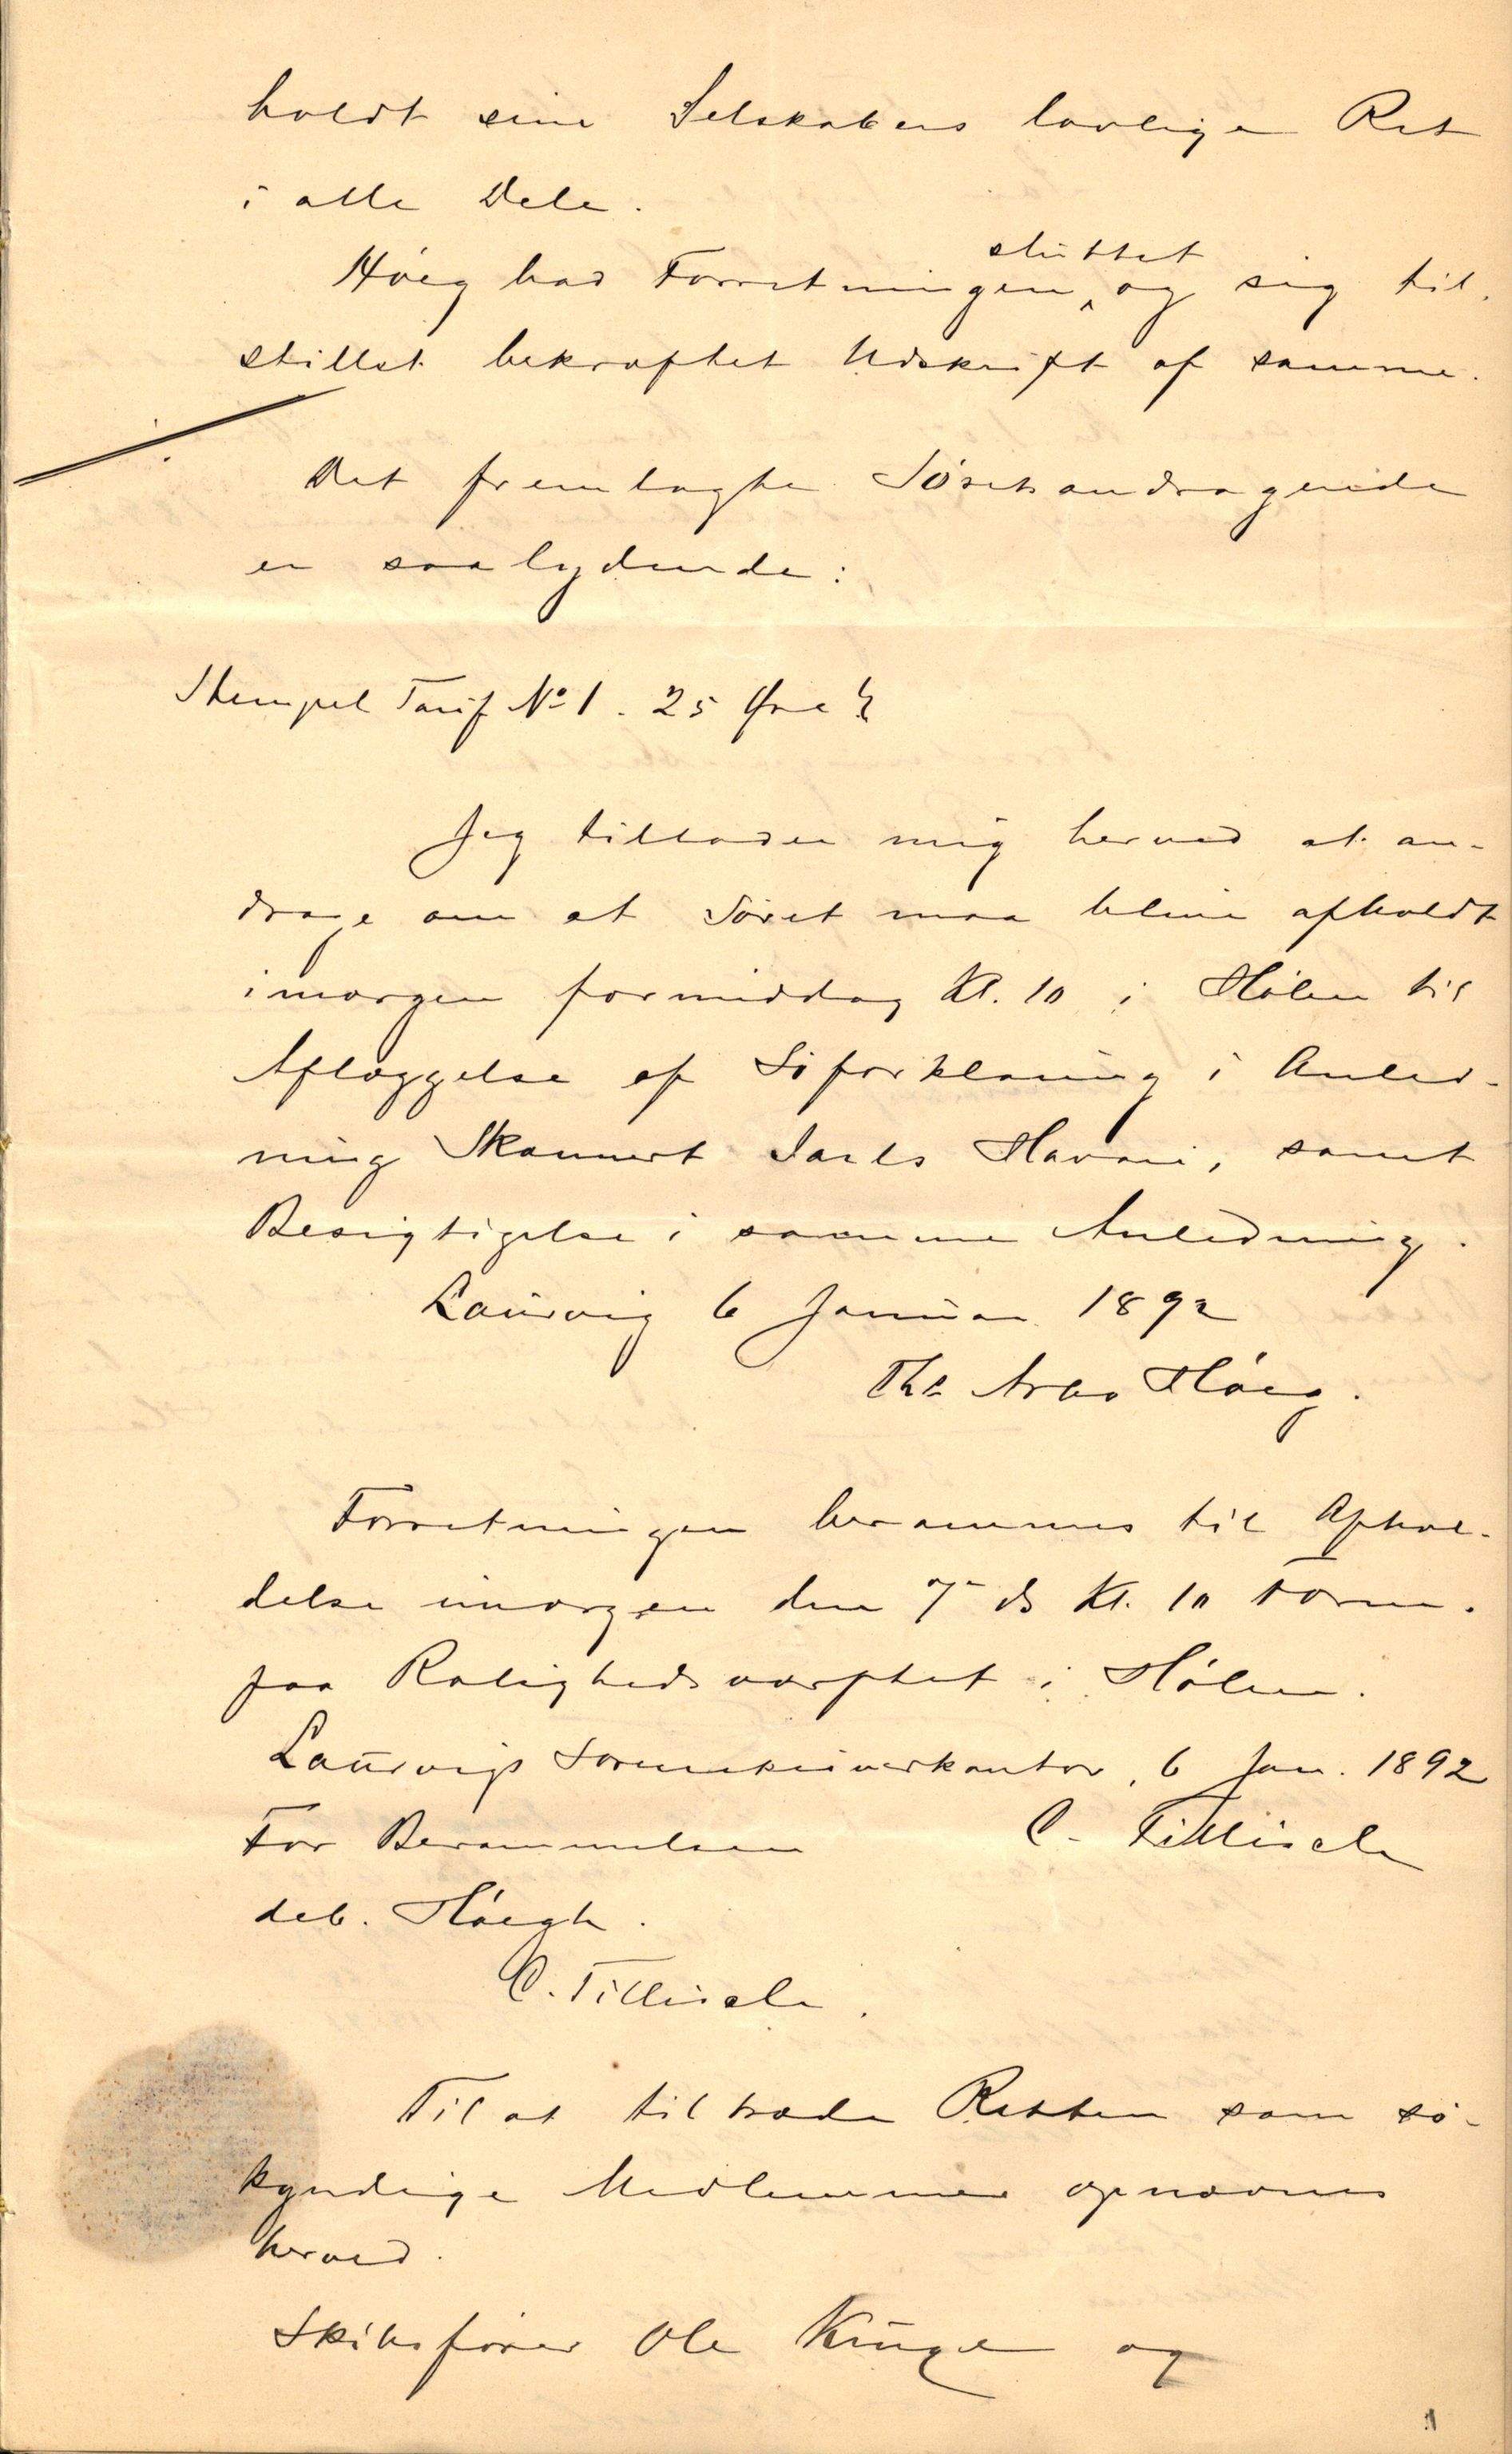 holdt sine Selskabers lovlige Ret
i alle Dele.
Höeg bad Forretningen sluttet og sig til-
stillet bekræftet Udskrift af samme.
Det fremlagte Söretsandragende
er saalydende:
Stempel Tarif No 1. 25 Øre
Jeg tillader mig herved at an-
drage om at Söret maa blive afholdt
imorgen formiddag Kl. 10 i Hölen til
Aflæggelse af Söforklaring i Anled-
ning Skonnert Jarls Havari, samt
Besigtigelse i samme Anledning.
Laurvig 6 Januar 1892
Ths Arbo Höeg.
Forretningen berammes til Afhol-
delse imorgen den 7de ds Kl. 10 Form.
paa Rolighedsværftet i Hölen.
Laurvigs Sorenskriverkontor, 6 Jan. 1892
For Berammelsen C. Tillisch
deb. Höegh.
C. Tillisch.
Til at tiltræde Retten som sö-
kyndige Medlemmer opnævnes
herved.
Skibsförer Ole Kruge og